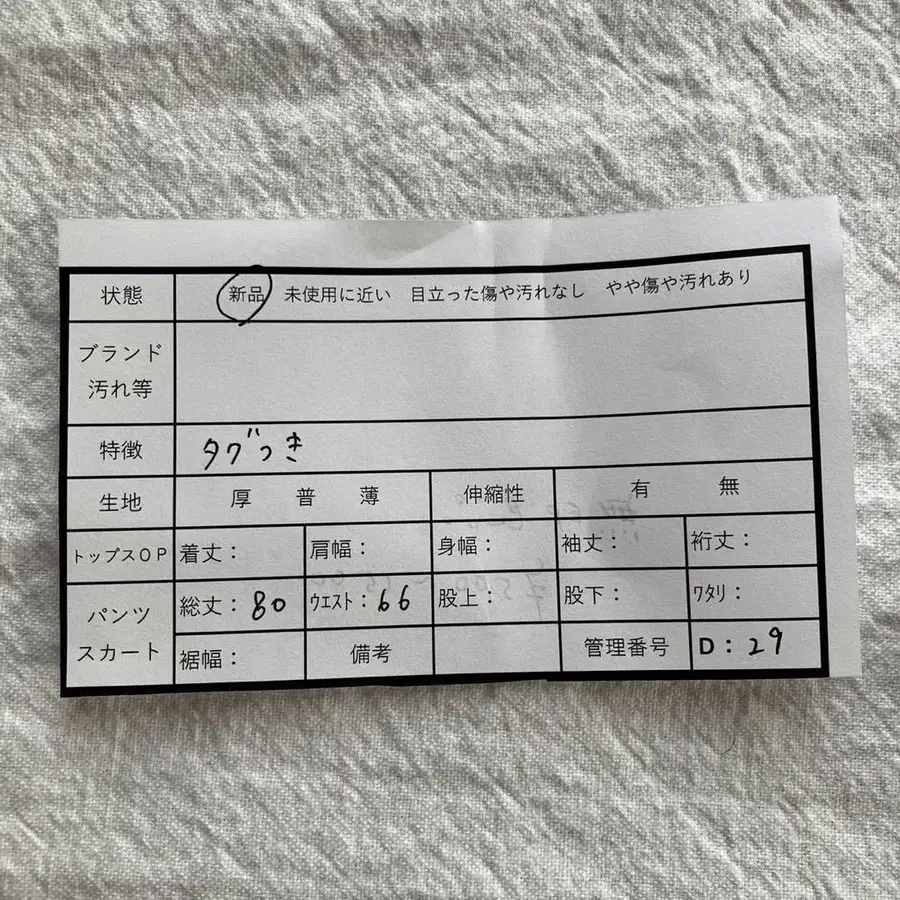 状態 新品 未使用に近い 目立った傷や汚れなし やや傷や汚れあり
ブランド
汚れ等
特徴 タグつき
生地 厚 普 薄 伸縮性 有 無
トップスOP 着丈: 肩幅: 身幅: 袖丈: 裄丈:
パンツ
スカート
総丈:80 ウエスト:66 股上: 股下: ワタリ:
裾幅: 備考 管理番号 D:29